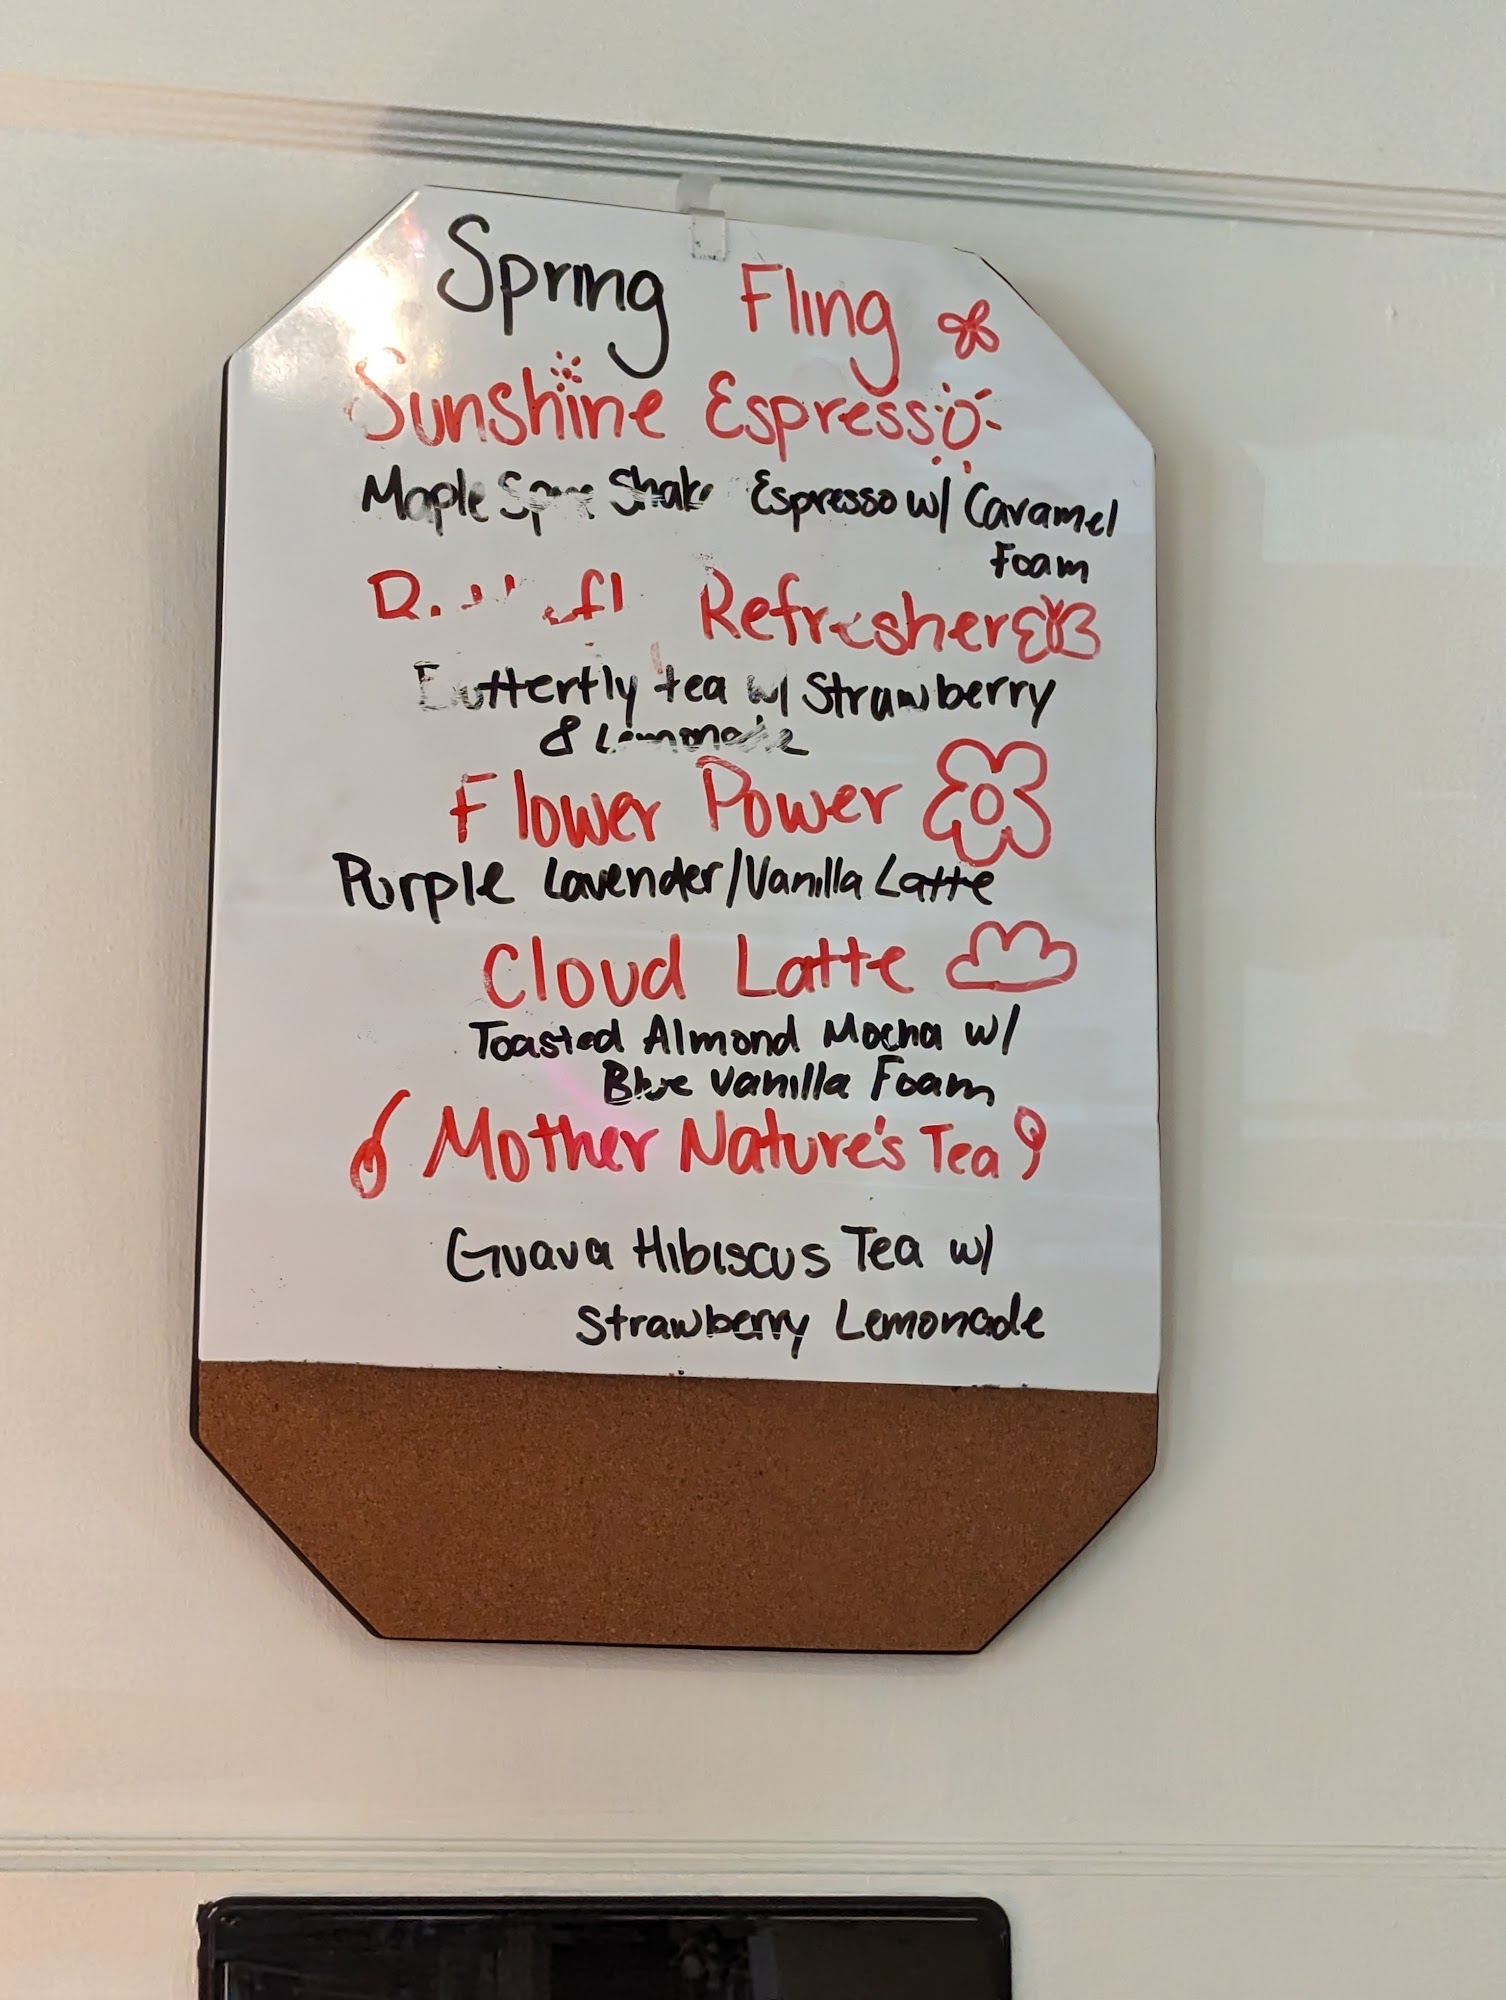 Spring Fling
Sunshine Espresso
Maple Shake Espresso w/ Caramel
Foam
Refresher
Butterfly tea w/ Strawberry
& Lemonade
Flower Power
Purple Lavender/Vanilla Latte
Cloud Latte
Toasted Almond Mocha w/
Blue Vanilla Foam
Mother Nature's Tea
Guava Hibiscus Tea w/
Strawberry Lemonade